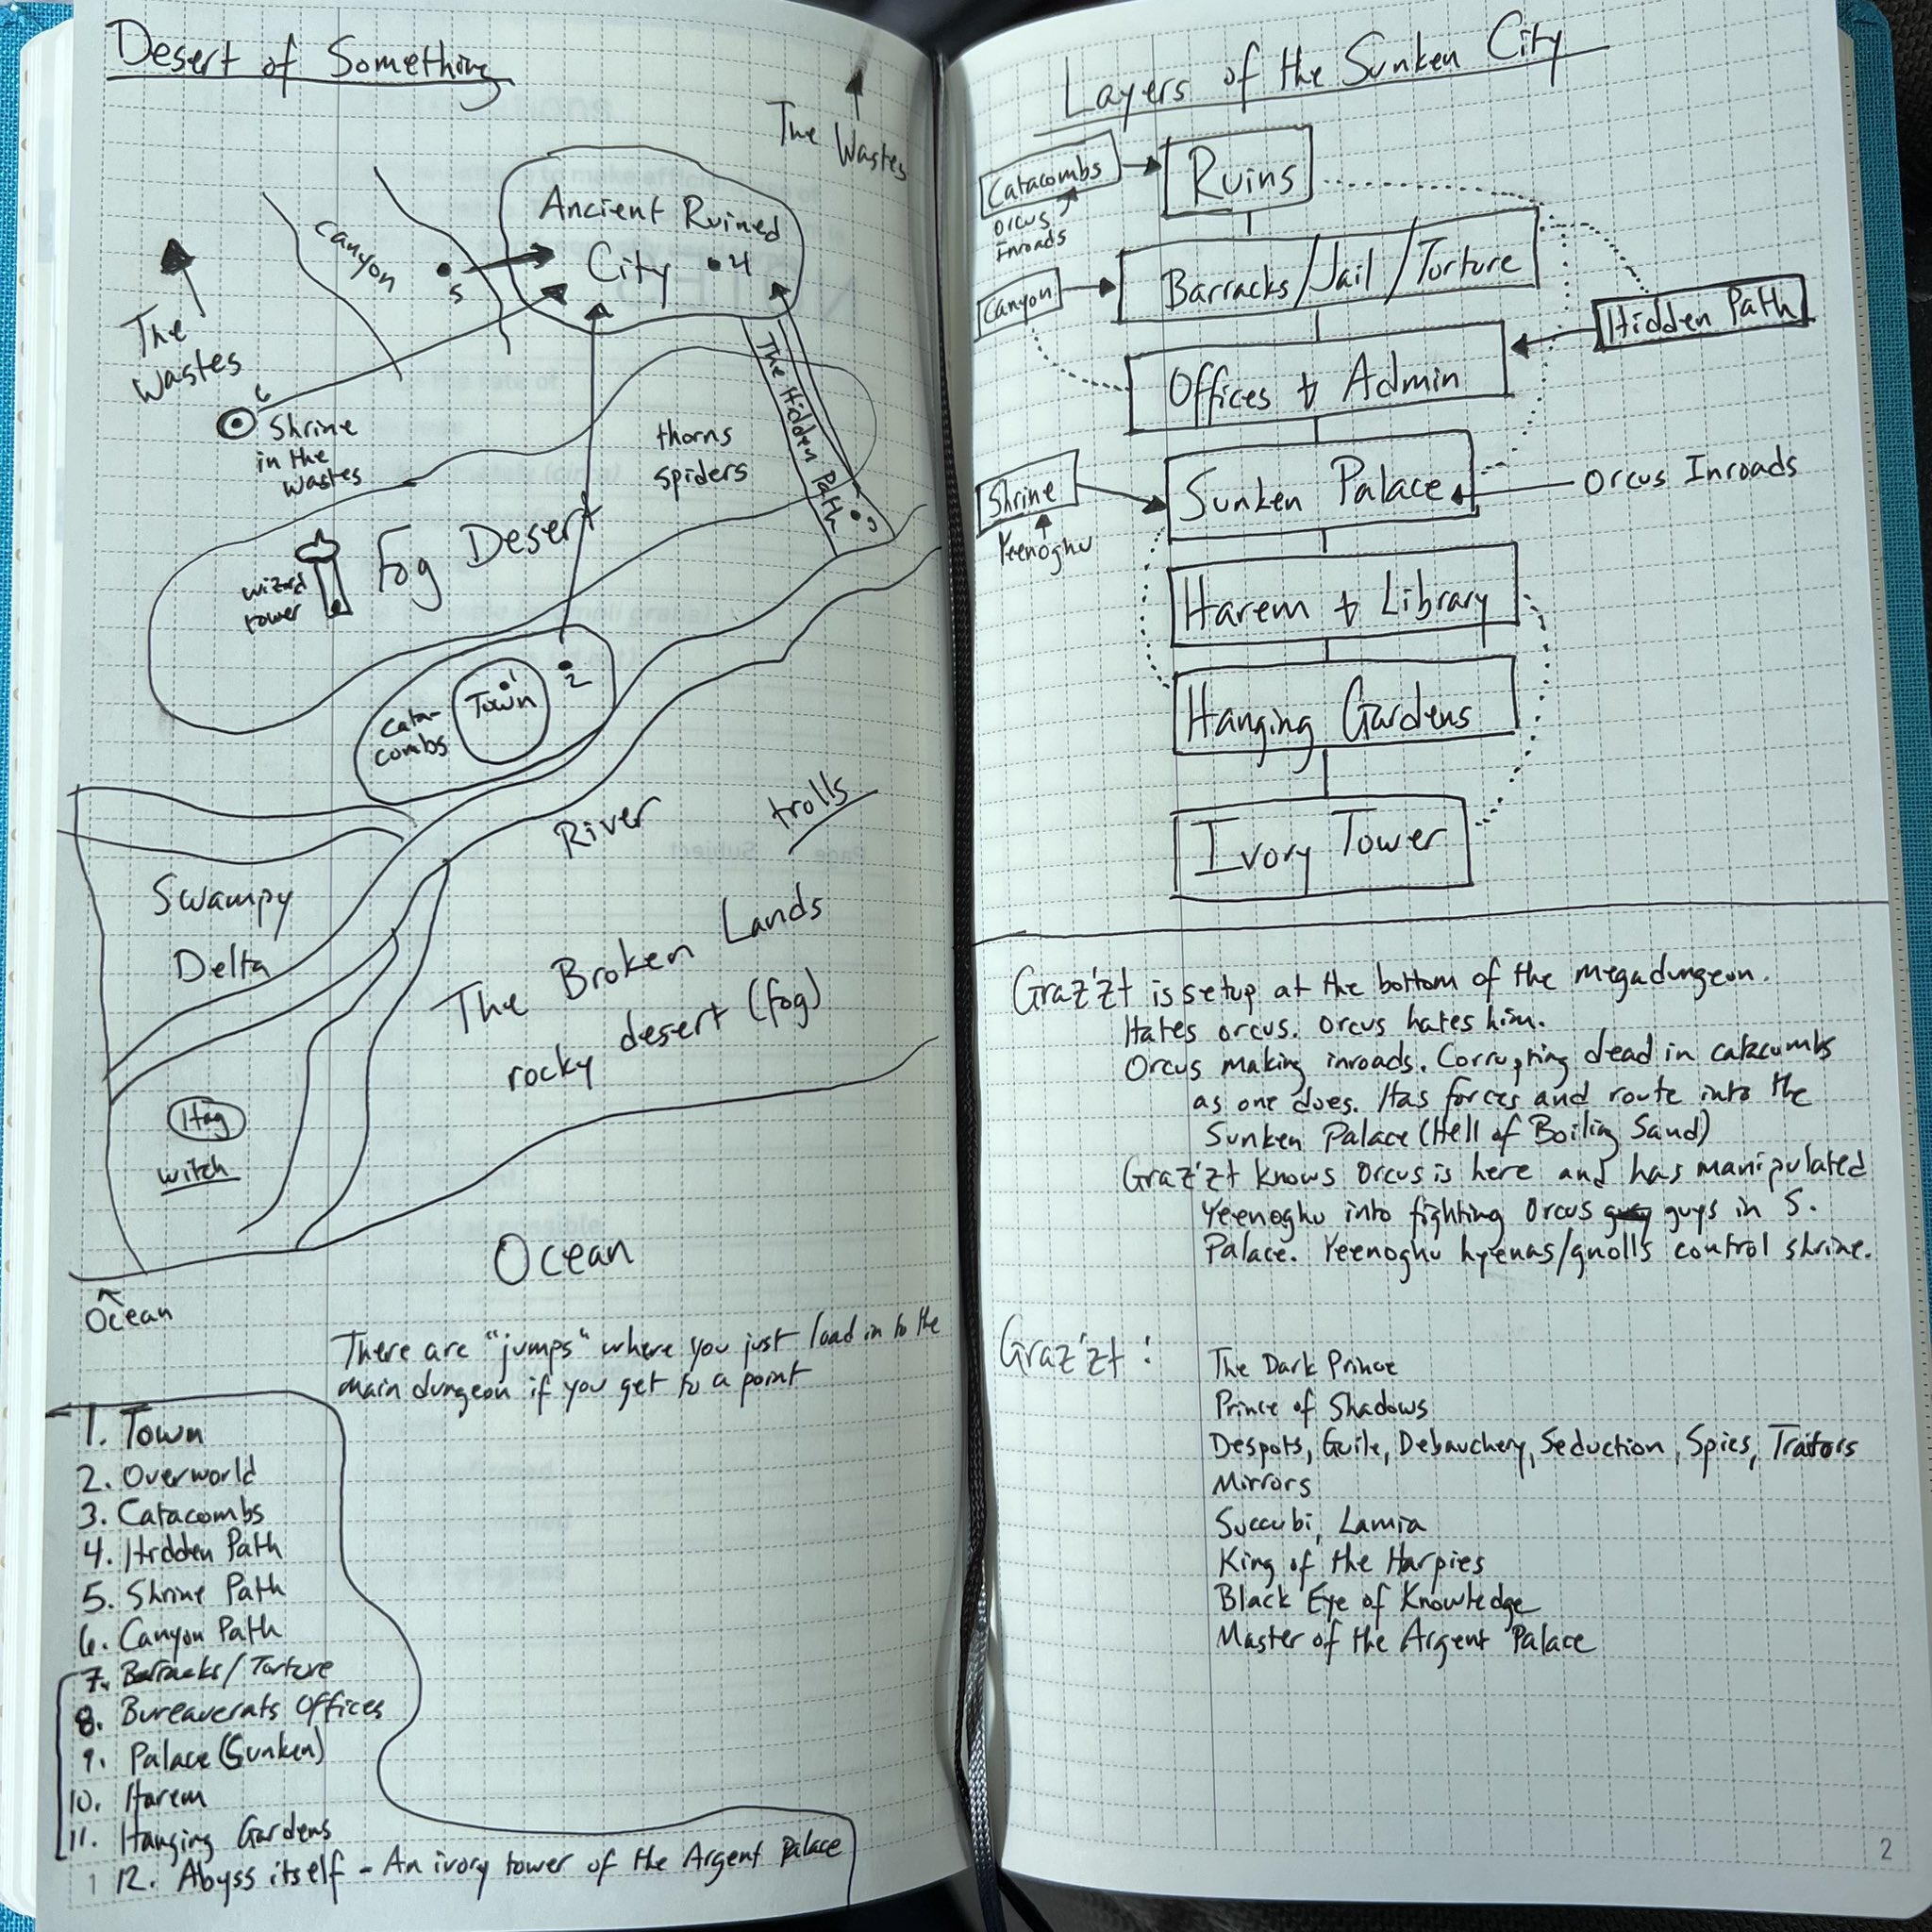 Desert of Something
The Wastes
Ancient Ruined
City • 4
Canyon
5
The
Wastes
6
Shrine
in the
wastes
The Hidden Path
3
thorns
spiders
Fog Desert
wizard
tower
1
Town
2
Cata-
combs
River
trolls
Swampy
Delta
The Broken Lands
rocky desert (fog)
Hag
witch
Ocean
Ocean
There are "jumps" where you just load in to the
main dungeon if you get to a point
1. Town
2. Overworld
3. Catacombs
4. Hidden Path
5. Shrine Path
6. Canyon Path
7. Barracks/Torture
8. Bureaucrats Offices
9. Palace (Sunken)
10. Harem
11. Hanging Gardens
12. Abyss itself - An ivory tower of the Argent Palace
1
Layers of the Sunken City
Catacombs
Ruins
Orcus
Inroads
Canyon
Barracks/Jail/Torture
Hidden Path
Offices & Admin
Shrine
Yeenoghu
Sunken Palace
Orcus Inroads
Harem & Library
Hanging Gardens
Ivory Tower
Graz'zt is setup at the bottom of the megadungeon.
Hates orcus. Orcus hates him.
Orcus making inroads. Corrupting dead in catacumbs
as one does. Has forces and route into the
Sunken Palace (Hell of Boiling Sand)
Graz'zt knows Orcus is here and has manipulated
Yeenoghu into fighting Orcus guys in S.
Palace. Yeenoghu hyenas/gnolls control shrine.
Graz'zt:
The Dark Prince
Prince of Shadows
Despots, Guile, Debauchery, Seduction, Spies, Traitors
Mirrors
Succubi, Lamia
King of the Harpies
Black Eye of Knowledge
Master of the Argent Palace
2